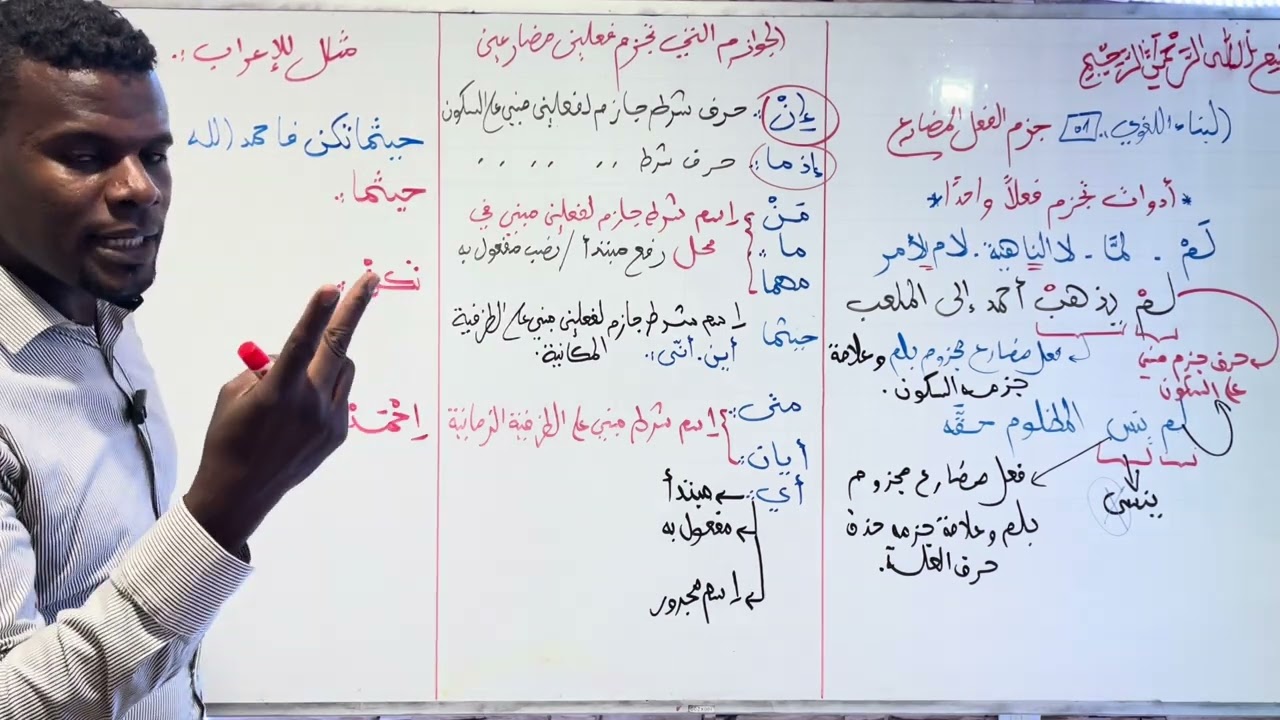 بسم الله الرحمن الرحيم
البناء اللغوي : 01 جزم الفعل المضارع
* أدوات تجزم فعلاً واحدًا *
لَمْ . لمَّا - لا الناهية - لام الأمر
لَمْ يذهبْ أحمد إلى الملعب
حرف جزم مبني على السكون
فعل مضارع مجزوم بلم وعلامة
جزمه السكون .
لم ينس المظلوم حقّه
ينسى
فعل مضارع مجزوم
بلم وعلامة جزمه حذف
حرف العلة .
الجوازم التي تجزم فعلين مضارعين
إِنْ : حرف شرط جازم لفعلين مبني على السكون
إذ ما : حرف شرط ,, ,, ,, ,,
مَنْ
ما :
مهما
اسم شرط جازم لفعلين مبني في
محل رفع مبتدأ / نصب مفعول به
حيثما
اسم شرط جازم لفعلين مبني على الظرفية
المكانية .
أين . أنّى :
متى :
أيان :
اسم شرط مبني على الظرفية الزمانية
أي : مبتدأ
مفعول به
اسم مجرور
مثال للإعراب :
حيثما تكن فاحمد الله
حيثما :
تكنْ
اِحْمَدْ